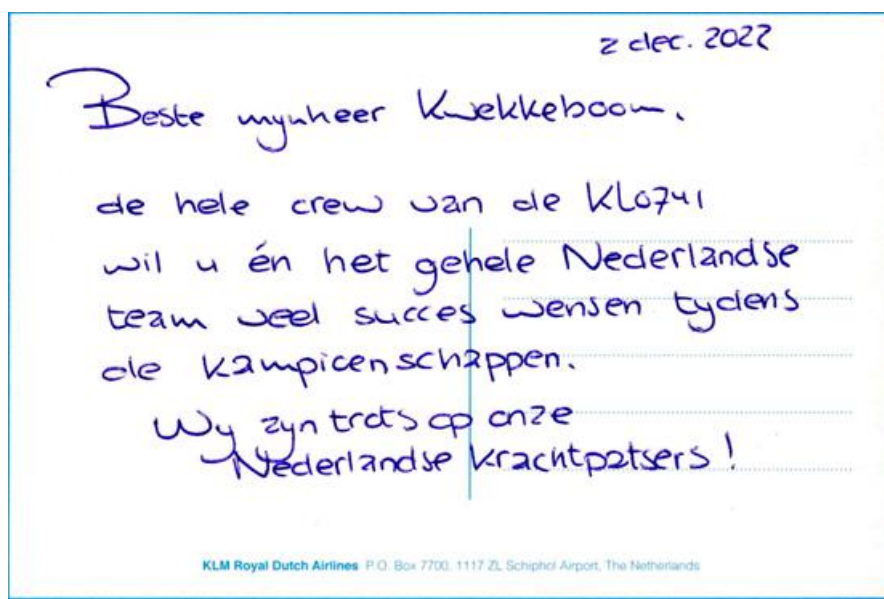 2 dec. 2022
Beste mynheer Kwekkeboom,
de hele crew van de KL0741
wil u én het gehele Nederlandse
team veel succes wensen tydens
de kampioenschappen.
Wy zyn trots op onze
Nederlandse krachtpatsers!
KLM Royal Dutch Airlines P.O. Box 7700, 1117 ZL Schiphol Airport, The Netherlands